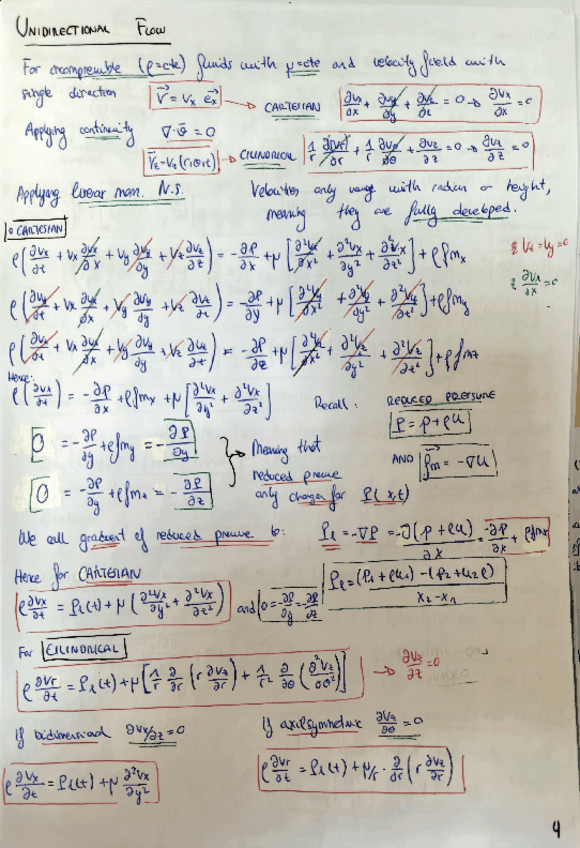 UNIDIRECTIONAL FLOW
For incompressible (ρ=cte) fluids with μ=cte and velocity field with
single direction V⃗ = Vx e⃗x → CARTESIAN ∂Vx/∂x + ∂Vy/∂y + ∂Vz/∂z = 0 → ∂Vx/∂x = 0
Applying continuity ∇·v̄ = 0
V̄z = Vz(r,θ,t) → CILINDRICAL 1/r ∂(rVr)/∂r + 1/r ∂Vθ/∂θ + ∂Vz/∂z = 0 → ∂Vz/∂z = 0
Applying linear mom. N.S. Velocities only vary with radius or height,
meaning they are fully developed.
CARTESIAN
ρ(∂Vx/∂t + Vx ∂Vx/∂x + Vy ∂Vx/∂y + Vz ∂Vx/∂z) = -∂P/∂x + μ[∂²Vx/∂x² + ∂²Vx/∂y² + ∂²Vx/∂z²] + ρfmx { Vz = Vy = 0
ρ(∂Vy/∂t + Vx ∂Vy/∂x + Vy ∂Vy/∂y + Vz ∂Vy/∂z) = -∂P/∂y + μ[∂²Vy/∂x² + ∂²Vy/∂y² + ∂²Vy/∂z²] + ρfmy { ∂Vx/∂x = 0
ρ(∂Vz/∂t + Vx ∂Vz/∂x + Vy ∂Vz/∂y + Vz ∂Vz/∂z) = -∂P/∂z + μ[∂²Vz/∂x² + ∂²Vz/∂y² + ∂²Vz/∂z²] + ρfmz
Hence:
ρ(∂Vx/∂t) = -∂P/∂x + ρfmx + μ[∂²Vx/∂y² + ∂²Vx/∂z²] Recall: REDUCED PRESSURE
P = p + ρU
0 = -∂P/∂y + ρfmy = -∂P/∂y
Meaning that
reduced pressure
only changes for P(x,t)
AND f⃗m = -∇U
0 = -∂P/∂z + ρfmz = -∂P/∂z
We call gradient of reduced pressure to: Pl = -∇P = -∂(p+ρU)/∂x = -∂P/∂x + ρfmx
Hence for CARTESIAN
ρ ∂Vx/∂t = Pl(t) + μ(∂²Vx/∂y² + ∂²Vx/∂z²) and 0 = -∂P/∂y = -∂P/∂z Pl = (P1+ρU1) - (P2+U2ρ) / x2-x1
For CILINDRICAL
ρ ∂Vr/∂t = Pl(t) + μ[1/r ∂/∂r (r ∂Vz/∂r) + 1/r² ∂/∂θ (∂²Vz/∂θ²)] → ∂Vz/∂z = 0
If bidimensional ∂Vx/∂z = 0 If axilsymmetric ∂Vz/∂θ = 0
ρ ∂Vx/∂t = Pl(t) + μ ∂²Vx/∂y² ρ ∂Vr/∂t = Pl(t) + μ/r · ∂/∂r (r ∂Vz/∂r)
4